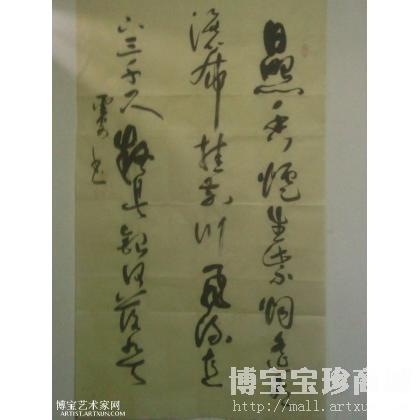 日照香爐生紫烟遥看
瀑布挂前川飛流直
下三千尺疑是銀河落九天
書
博宝艺术家网
ARTIST.ARTXUN.COM
博宝宝珍商
http://mall.artxun